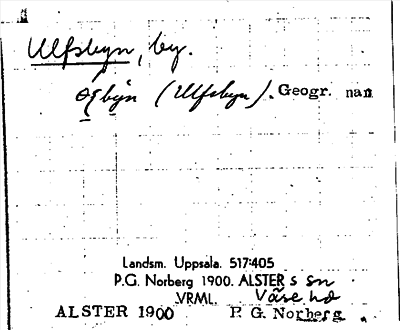 Ulfsbyn, by.
(Ulfsbyn). Geogr. nan
Landsm. Uppsala. 517:405
P.G. Norberg 1900. ALSTER s sn
VRML. Väse hd
ALSTER 1900 P. G. Norberg.